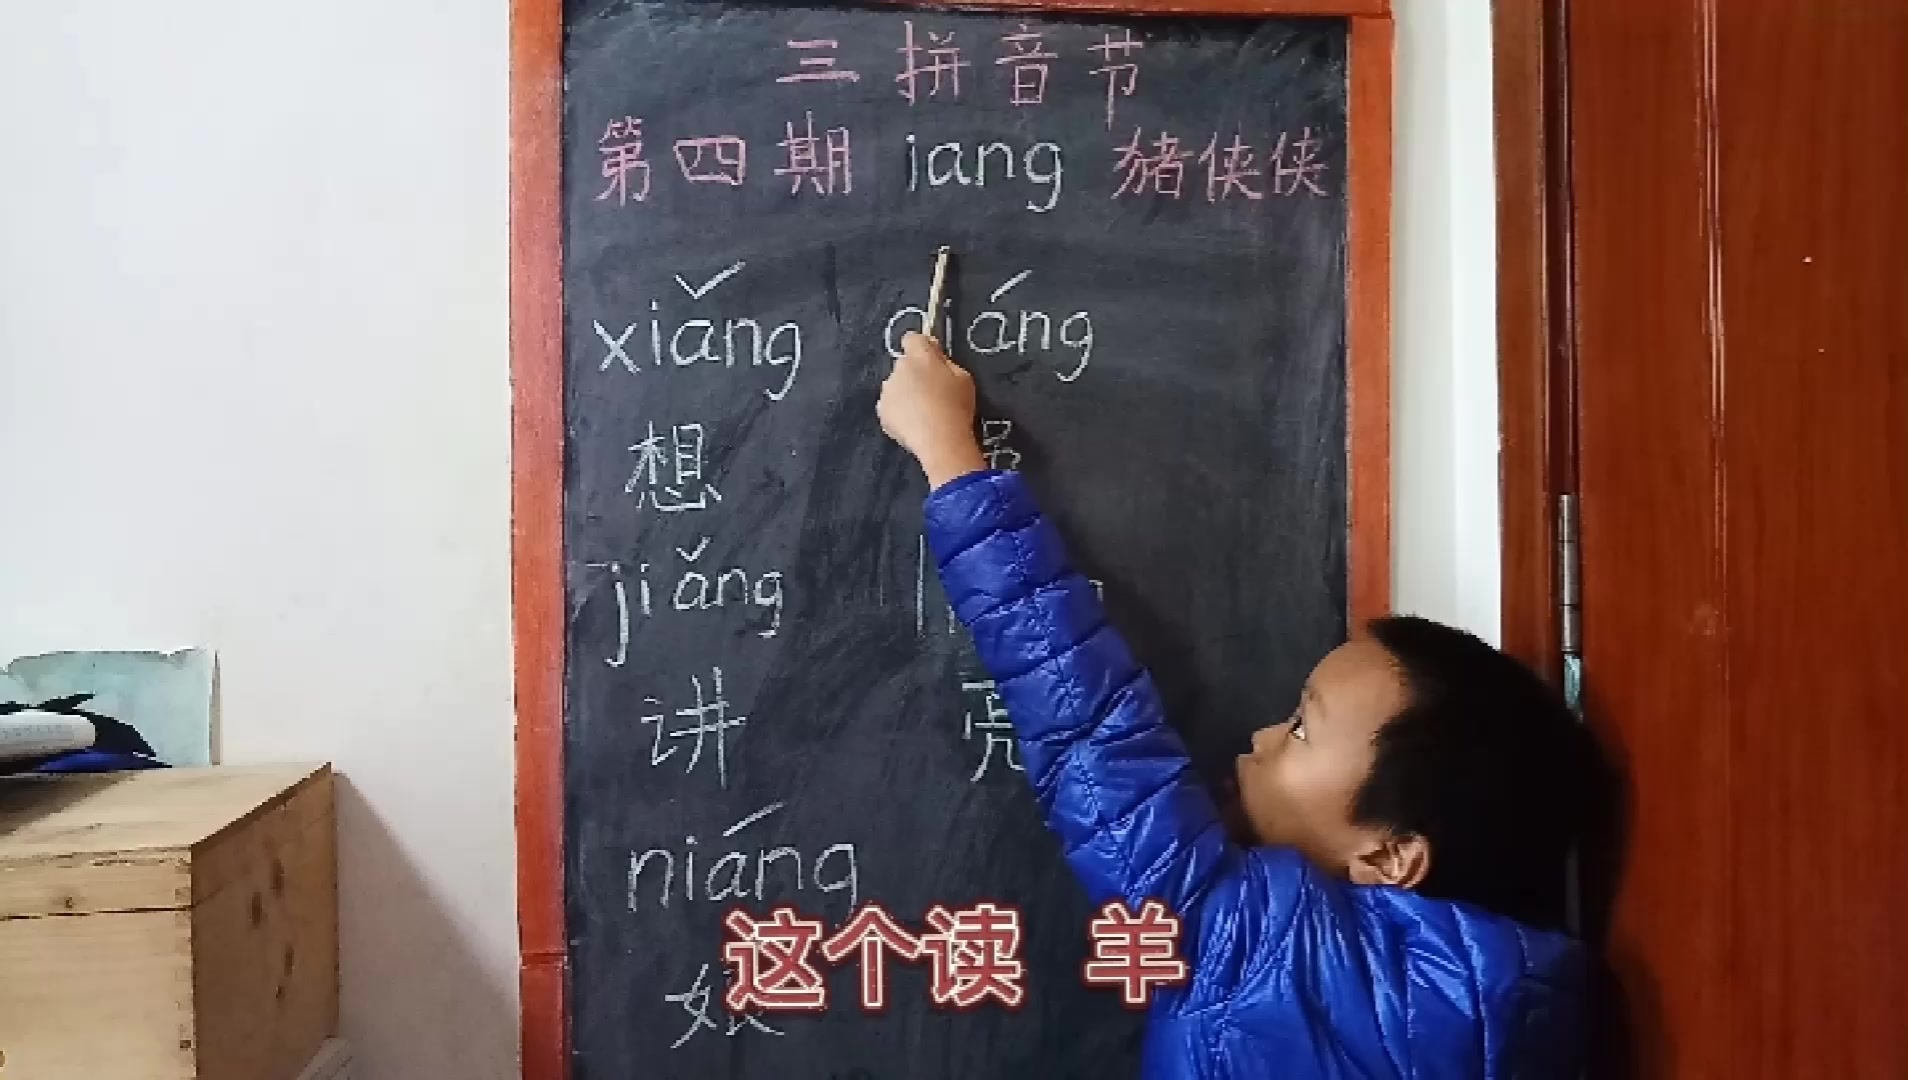 三拼音节
第四期 iang 猪侠侠
xiǎng qiáng
想 强
jiǎng
讲 亮
niáng
娘
这个读 羊